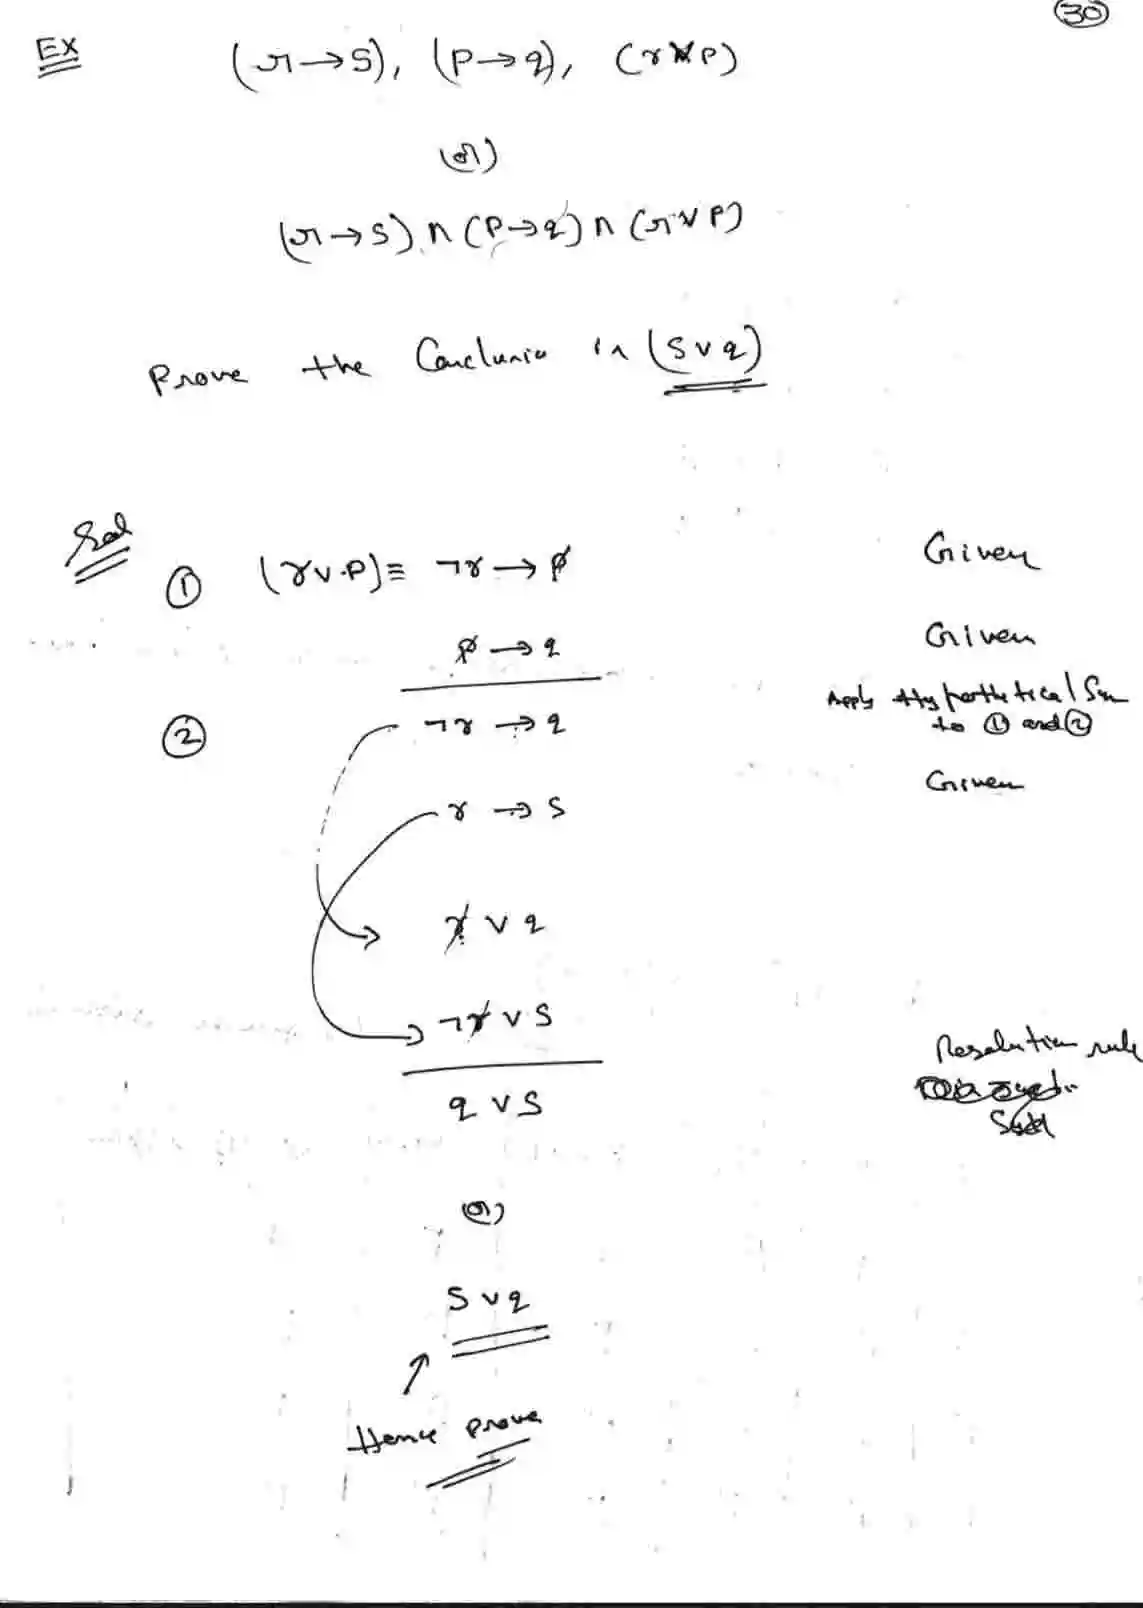 30
Ex (r→s), (p→q), (r∨p)
(or)
(r→s) ∧ (p→q) ∧ (r∨p)
Prove the Conclusio is (s∨q)
Sol
① (r∨p) ≡ ¬r → p Given
p → q Given
② ¬r → q Apply Hypothetical Sm to ① and ②
r → s Given
r ∨ q
¬r ∨ s
q ∨ s Resolution rule
(or)
s ∨ q
↑
Hence prove